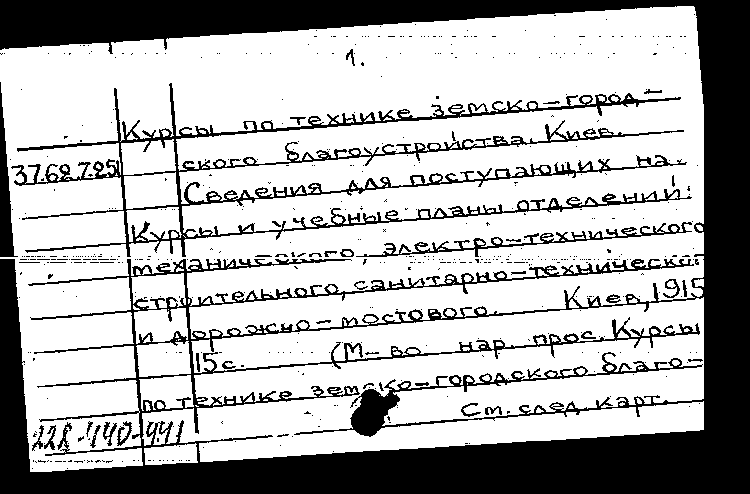 1.
Курсы по технике земско-город-
ского благоустройства. Киев.
37.62.725
Сведения для поступающих на
Курсы и учебные планы отделений:
механического, электро-технического
строительного, санитарно-технической
и дорожно-мостового. Киев, 1915
15 с. (М-во нар. прос. Курсы
по технике земско-городского благо-
См. след. карт.
228-440-441